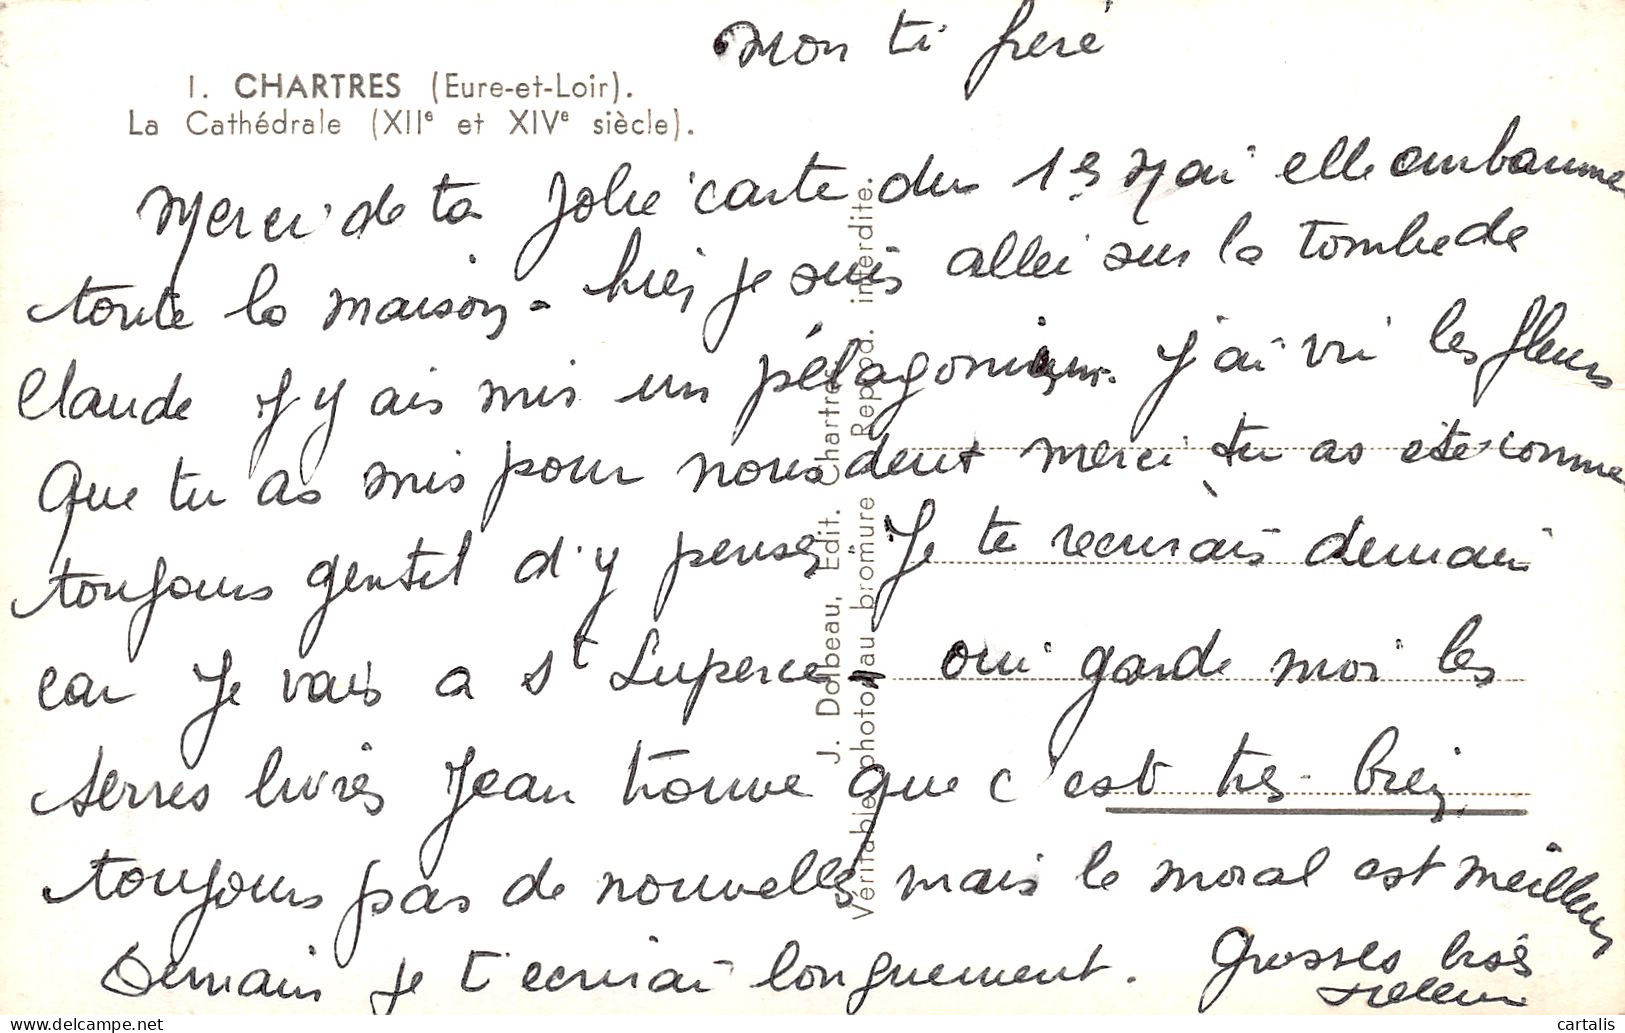 Mon ti frere
1. CHARTRES (Eure-et-Loir).
La Cathédrale (XIIe et XIVe siècle).
Merci de ta jolie carte du 1er Mai elle embaume
toute la maison - hier je suis allei sur la tombe de
Claude J'y ais mis un pélagonium. J'ai vu les fleurs
que tu as mis pour nous deux merci tu as eté comme
toujours gentil d'y penser Je te recrirais demain
car Je vais a St Luperce - oui garde moi les
livres Jean trouve que c'est tres bien,
toujours pas de nouvelles mais le moral est meilleur
Demain je t'ecrirai longuement. Grosses bises
J. Dolbeau, Edit. Chartres.
Véritable photo au bromure Reprod. interdite.
cartalis